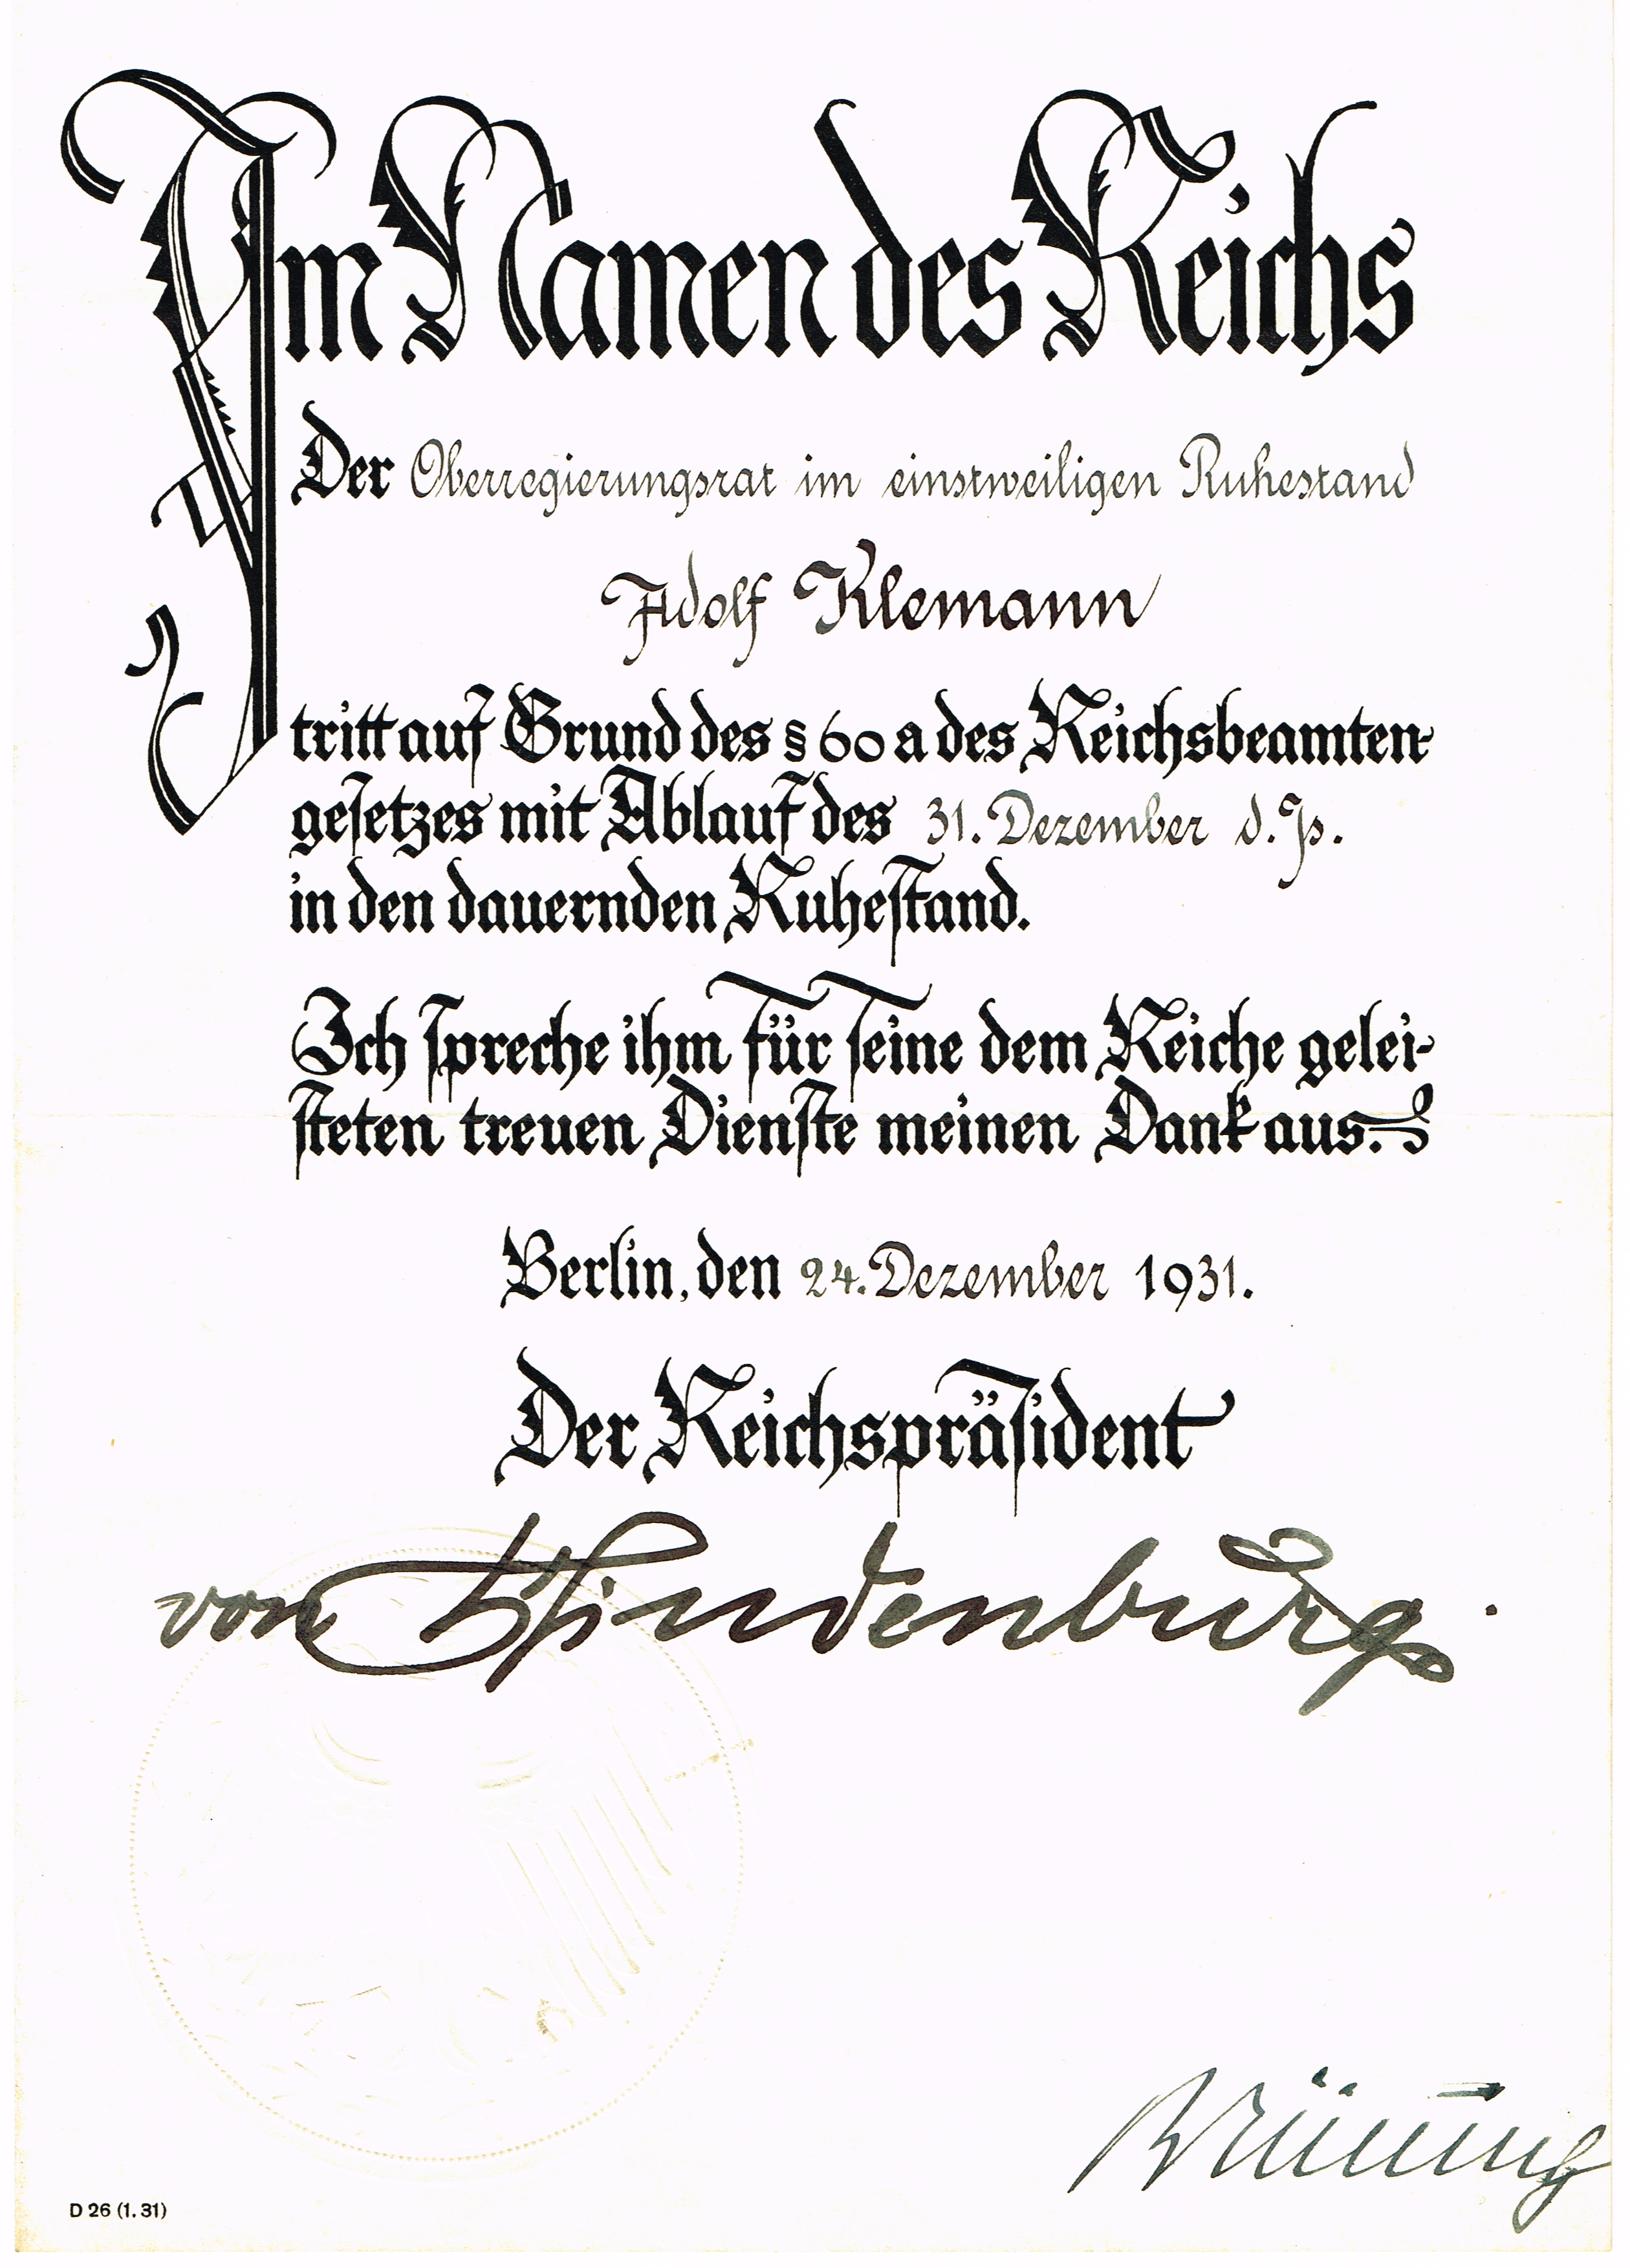 Im Namen des Reichs
Der Oberregierungsrat im einstweiligen Ruhestand
Adolf Klemann
tritt auf Grund des § 60 a des Reichsbeamten-
gesetzes mit Ablauf des 31. Dezember d. Js.
in den dauernden Ruhestand.
Ich spreche ihm für seine dem Reiche gelei-
steten treuen Dienste meinen Dank aus.
Berlin, den 24. Dezember 1931.
Der Reichspräsident
von Hindenburg.
Brüning
D 26 (1. 31)